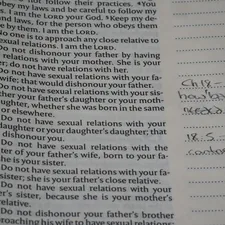 not follow their practices. ⁴You
obey my laws and be careful to follow my
I am the LORD your God. ⁵Keep my de-
laws, for the person who obeys them
by them. I am the LORD.
No one is to approach any close relative to
sexual relations. I am the LORD.
Do not dishonour your father by having
relations with your mother. She is your
; do not have relations with her.
Do not have sexual relations with your fa-
wife; that would dishonour your father.
Do not have sexual relations with your sister,
your father's daughter or your moth-
daughter, whether she was born in the same
or elsewhere.
Do not have sexual relations with your
daughter or your daughter's daughter; that
dishonour you.
Do not have sexual relations with the
of your father's wife, born to your fa-
she is your sister.
Do not have sexual relations with your fa-
sister; she is your father's close relative.
Do not have sexual relations with your
sister, because she is your mother's
relative.
Do not dishonour your father's brother
approaching his wife to have sexual relations
18.5